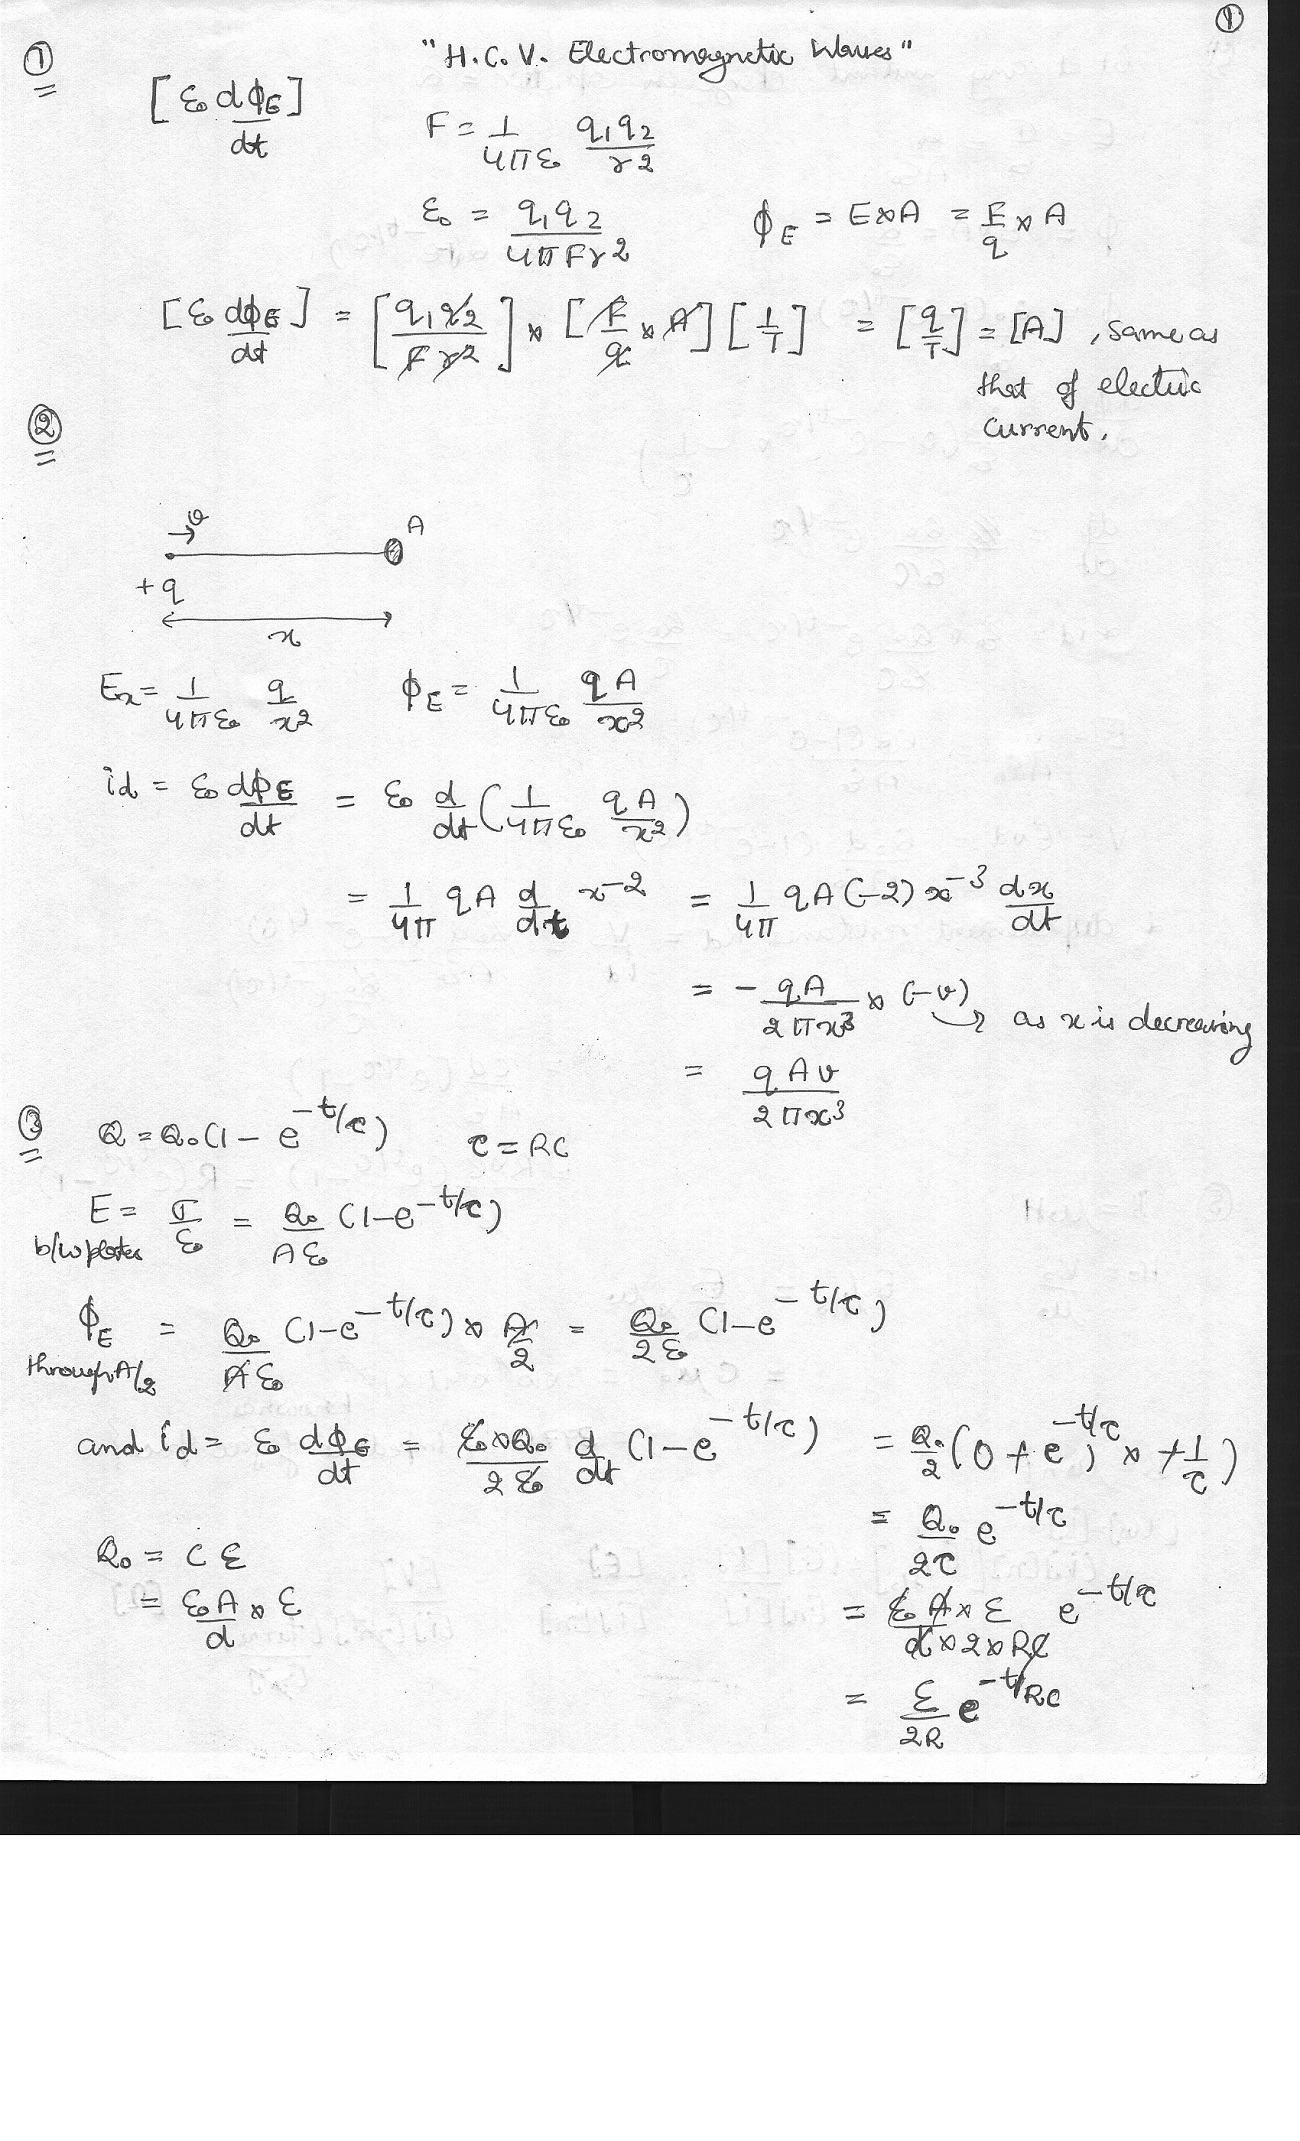 ①
"H.C.V. Electromagnetic Waves"
①
[ε₀ dϕ_E/dt]
F = 1/4πε₀ q₁q₂/r²
ε₀ = q₁q₂/4πFr²
ϕ_E = E×A = F/q × A
[ε₀ dϕ_E/dt] = [q₁q₂/Fr²] × [F/q × A] [1/T] = [q/T] = [A], same as
that of electric
current.
②
v
A
+q
x
E_x = 1/4πε₀ q/x²
ϕ_E = 1/4πε₀ qA/x²
id = ε₀ dϕ_E/dt = ε₀ d/dt (1/4πε₀ qA/x²)
= 1/4π qA d/dt x⁻² = 1/4π qA(-2)x⁻³ dx/dt
= - qA/2πx³ × (-v) → as x is decreasing
= qAv/2πx³
③
Q = Q₀(1 - e^-t/τ)
τ = RC
E = σ/ε₀ = Q₀/Aε₀ (1-e^-t/τ)
b/w plates
ϕ_E = Q₀/Aε₀ (1-e^-t/τ) × A/2 = Q₀/2ε₀ (1-e^-t/τ)
through A/2
and id = ε₀ dϕ_E/dt = ε₀×Q₀/2ε₀ d/dt (1-e^-t/τ) = Q₀/2 (0 + e^-t/τ) × +1/τ)
= Q₀/2τ e^-t/τ
Q₀ = C ε
= ε₀A/d × ε
= ε₀A × ε/d×2×RC e^-t/τ
= ε/2R e^-t/RC